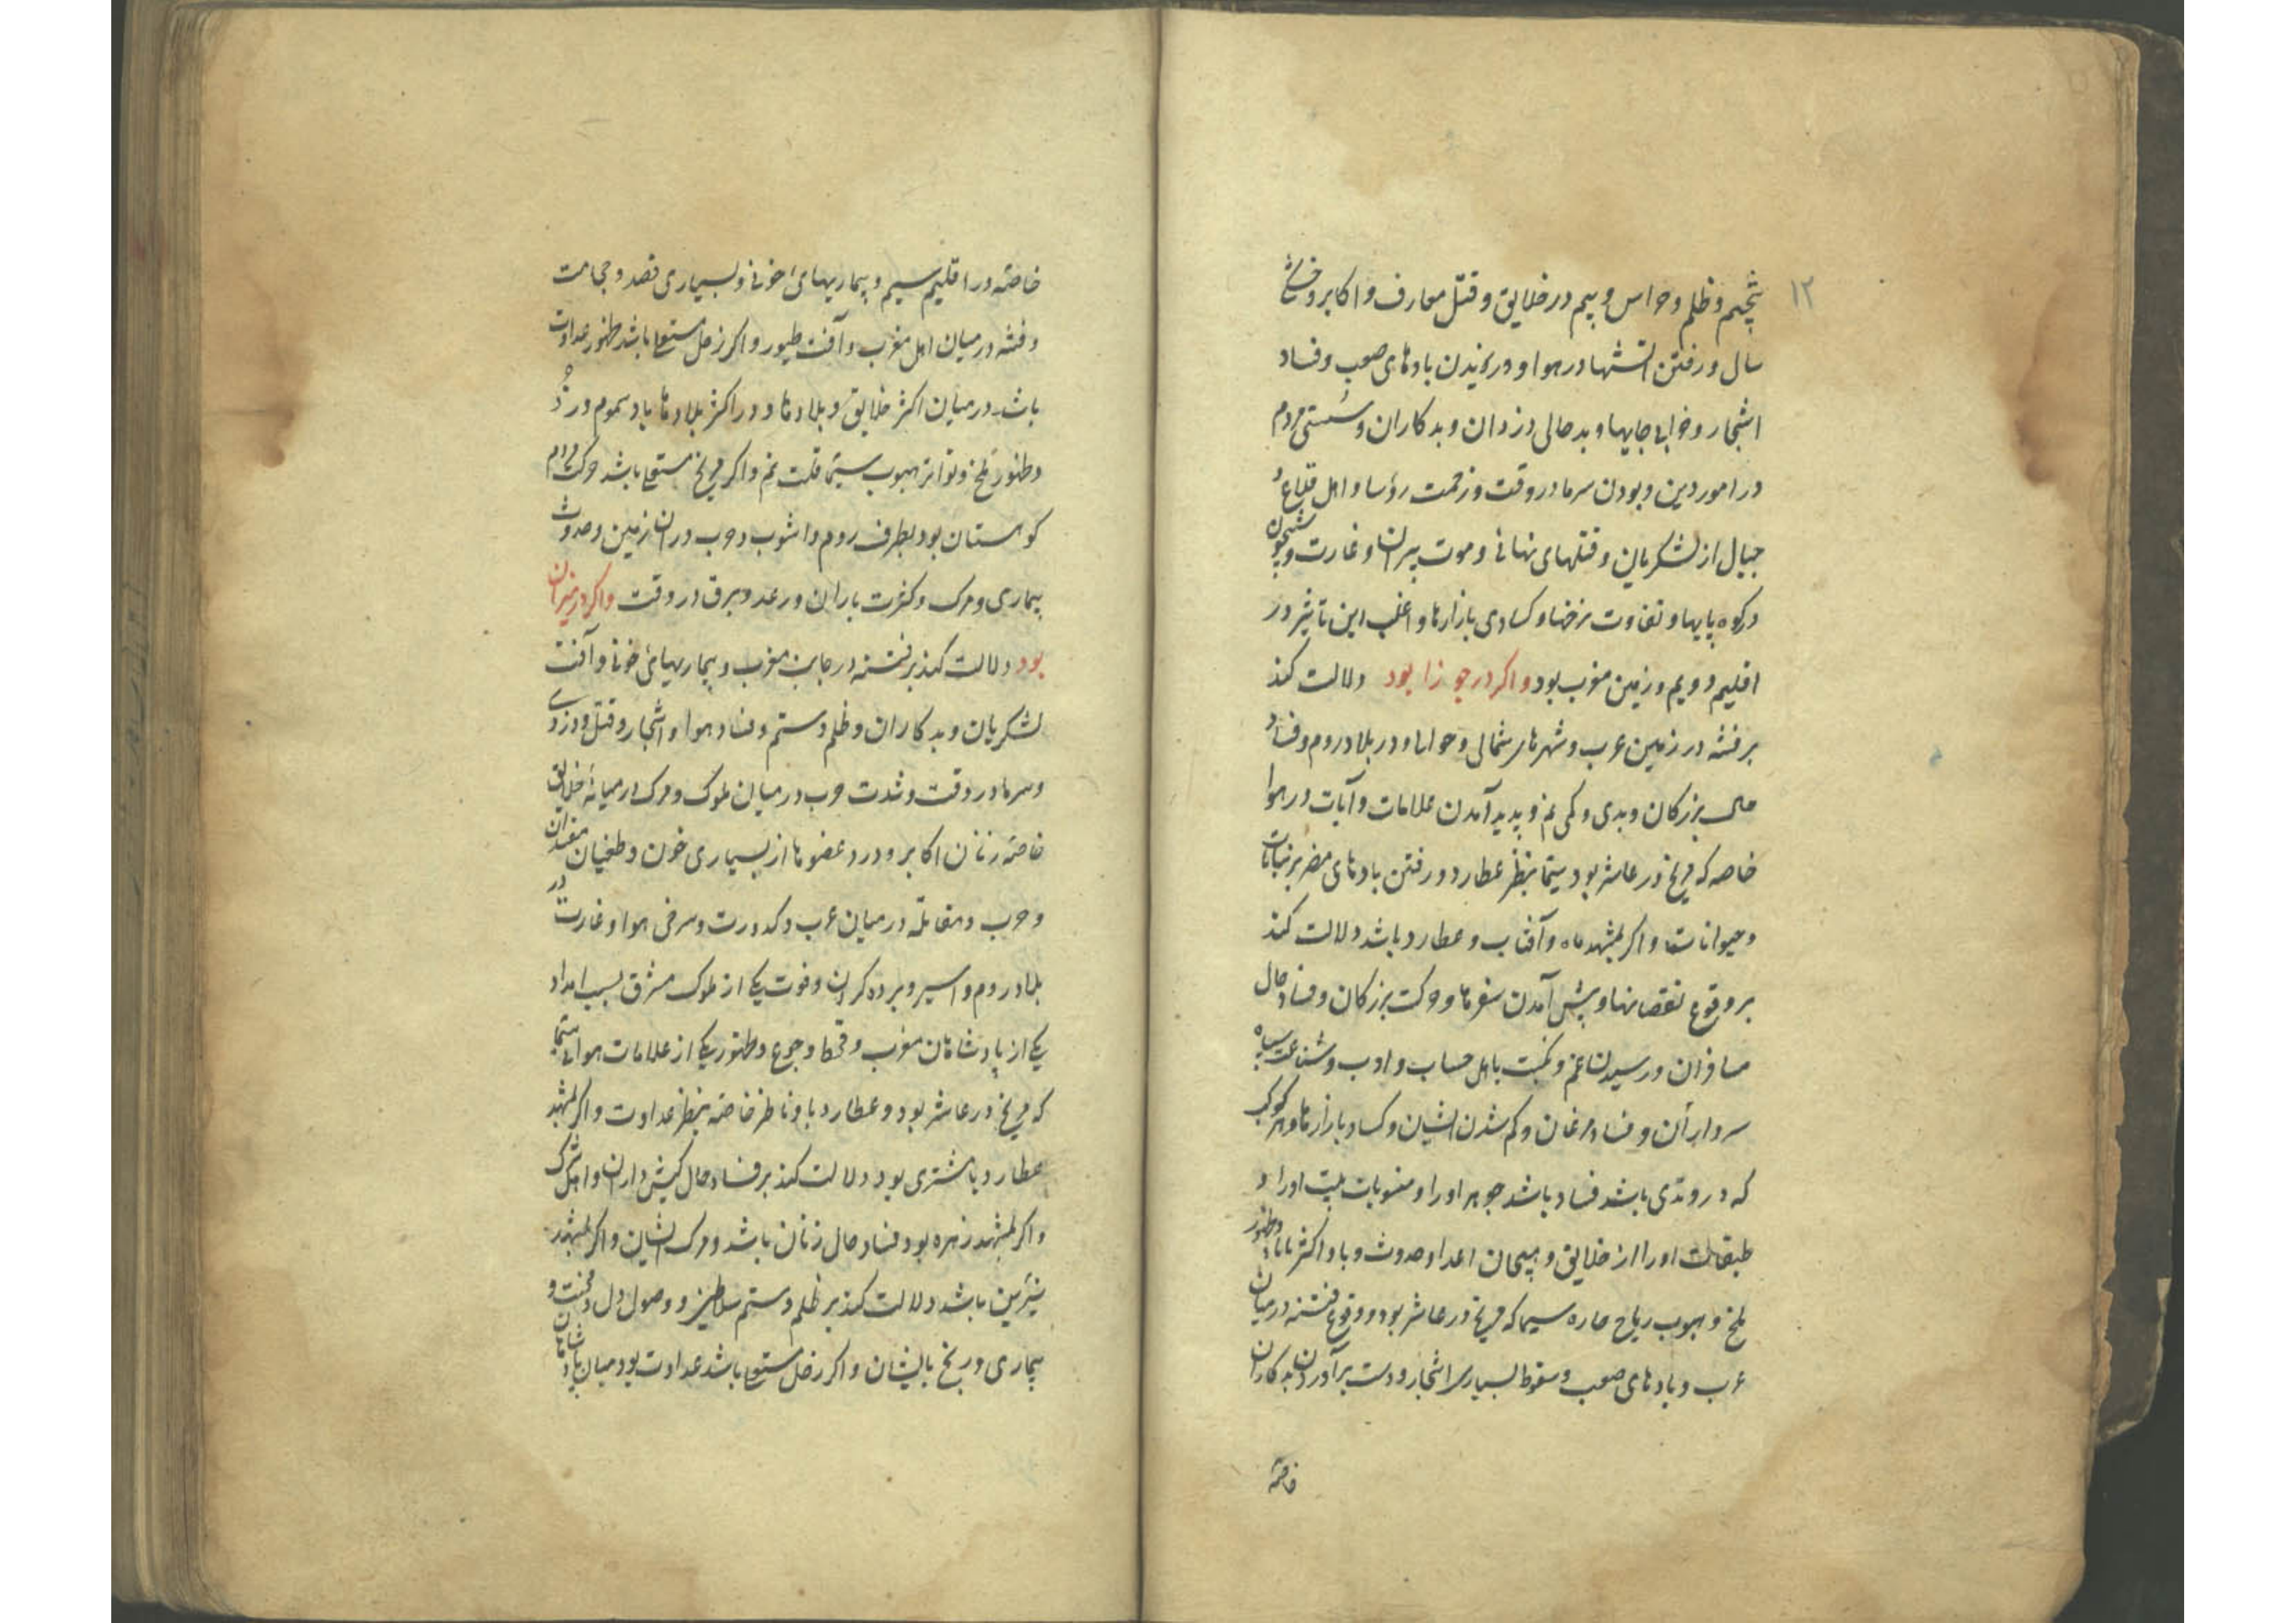 ۱۲
پنجم و ظلم و حواس و بیم در خلایق و قتل معارف و اکابر و خشکی
سال و رفتن آتشها در هوا و وزیدن بادهای صعب و فساد
اشجار و خرابی جایها و بد حالی دزدان و بدکاران و سستی مردم
در امور دین و بودن سرما در وقت و زحمت رؤسا و اهل قلاع و
جبال از لشکریان و قتلهای نهانی و موت پیران و غارت و شبیخون
در کوه پایها و تفاوت نرخها و کسادی بازارها و اغلب این تاثیر در
اقلیم دویم و زمین مغرب بود و اکر در جوزا بود دلالت کند
بر فتنه در زمین عرب و شهرهای شمالی و حوالی و در بلاد روم و فساد
حال بزرکان و بدی و کمی نم و پدید آمدن علامات و آیات در هوا
خاصه که مریخ در عاشر بود سیّما بنظر عطارد و رفتن بادهای مضر بر نباتات
و حیوانات و اکر بشهد ماه و آفتاب و عطارد باشد دلالت کند
بر وقوع نقصانها و پیش آمدن سفرها و حرکت بزرکان و فساد حال
مسافران و رسیدن غم و نکبت باهل حساب و ادب و شناعت سپاه
سرداران و فساد مرغان و کم شدن ایشان و کساد بازارها و هر کوکب
که در وتدی باشد فساد باشد جوهر او را و منسوبات بیت او را و
طبقات او را از خلایق و هیجان اعدا و حدوث وبا و اکثر و ظهور
ملخ و هبوب ریاح حاره سیما که مریخ در عاشر بود و وقوع فتنه در میان
عرب و بادهای صعب و سقوط بسیاری اشجار و دست برآوردن بدکاران
خاصّه
خاصّه در اقلیم سیم و بیماریهای خونی و بسیاری فصد و حجامت
و فتنه در میان اهل مغرب و آفت طیور و اکر زحل مستعلی باشد ظهور عداوت
باشد در میان اکثر خلایق و بلادها و در اکثر بلادها باد سموم وزد
و ظهور ملخ و تواتر هبوب سیّما قلت نم و اکر مریخ مستعلی باشد حرکت مردم
کوهستان بود بطرف روم و آشوب و حرب در آن زمین و حدوث
بیماری و مرک و کثرت باران و رعد و برق در وقت و اکر در میزان
بود دلالت کند بر فتنه در جانب مغرب و بیماریهای خونی و آفت
لشکریان و بدکاران و ظلم و ستم و فساد هوا و اشجار و قتل و دزدی
و سرما در وقت و شدت حرب در میان ملوک و مرک در میانهٔ خلایق
خاصّه زنان اکابر و درد عضوها از بسیاری خون و طغیان مفسدان
و حرب و مقاتله در میان عرب و کدورت و سرخی هوا و غارت در
بلاد روم و اسیر و برده کردن و فوت یکی از ملوک مشرق بسبب امداد
یکی از پادشاهان مغرب و قحط و جوع و ظهور یکی از علامات هوایی سیّما
که مریخ در عاشر بود و عطارد با او ناظر خاصّه بنظر عداوت و اکر بشهد
عطارد با مشتری بود دلالت کند بر فساد حال کیش داران و اهل شرک
و اکر بشهد زهره بود فساد حال زنان باشد و مرک ایشان و اکر بشهد
نیّرین باشد دلالت کند بر ظلم و ستم سلاطین و وصول دل و محنت و
بیماری و رنج بایشان و اکر زحل مستعلی باشد عداوت بود میان پادشاهان